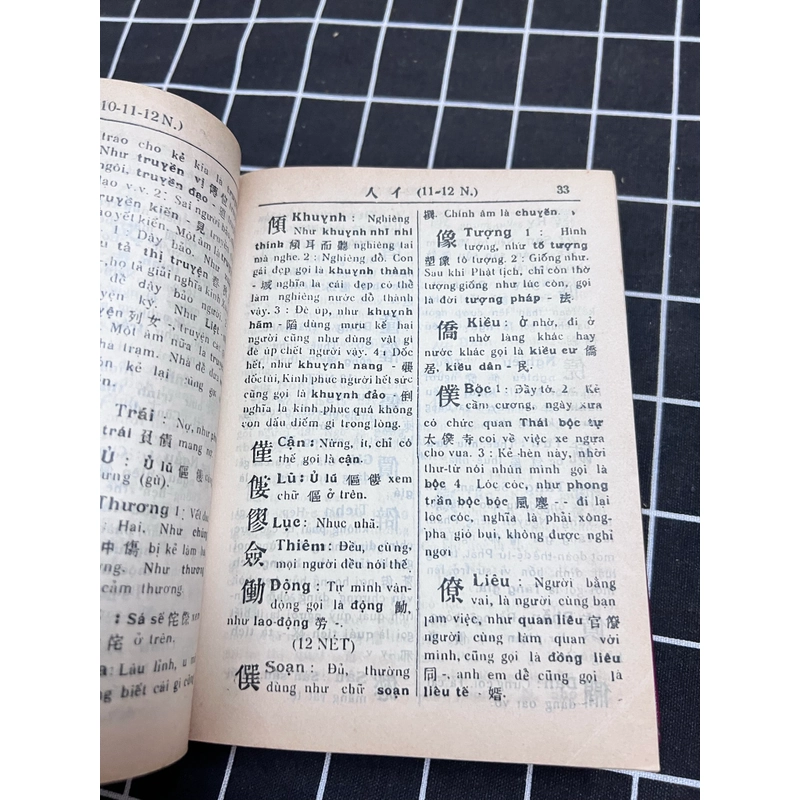 10-11-12 N.)
trao cho kẻ kia là
Như truyền vị 傳位
ngôi, truyền đạo - 道
đạo v.v. 2: Sai người
truyền kiến - 見
1 : Dây bảo. Như
tả thị truyện
họ tả giải nghĩa kinh
để dậy bảo người.
truyện ký. Như Liệt
truyện 列女, truyện các
Một âm nữa là
nhà trạm. Nhà để
kẻ lại cũng gọi
Trái : Nợ, như
trái 負債 mang nợ
Ủ : Ủ lũ 傴僂
lưng (gù).
Thương 1 : Vết
: Hại. Như
中傷 bị kẻ làm hại
thương. Như thương
cảm thương.
: Sá sế 侘傺 xem
侘 ở trên.
: Làu lỉnh,
không biết cái gì
人 亻 (11-12 N.) 33
傾 Khuynh : Nghiêng
Như khuynh nhĩ nhi
thính 傾耳而聽 nghiêng tai
mà nghe. 2 : Nghiêng đổ. Con
gái đẹp gọi là khuynh thành
- 城 nghĩa là cái đẹp có thể
làm nghiêng nước đổ thành
vậy. 3 : Đè úp, như khuynh
hãm - 陷 dùng mưu kế hại
người cũng như dùng vật gì
đè úp chết người vậy. 4 : Dốc
hết, như khuynh nang - 囊
dốc túi, Kính phục người hết sức
cũng gọi là khuynh đảo - 倒
nghĩa là kính phục quá không
còn dấu diếm gì trong lòng.
僅 Cận : Nừng, ít, chỉ có
thế gọi là cận.
僂 Lũ : Ủ lũ 傴僂 xem
chữ 傴 ở trên.
僇 Lục : Nhục nhã.
僉 Thiêm : Đều, cùng,
mọi người đều nói thế.
働 Động : Tự mình vận-
động gọi là động 働,
như lao-động 勞 -.
(12 NÉT)
僎 Soạn : Đủ, thường
dùng như chữ soạn
撰. Chính âm là chuyên.
像 Tượng 1 : Hình
tượng, như tố tượng
塑像 tô tượng. 2 : Giống như.
Sau khi Phật tịch, chỉ còn thờ
tượng giống như lúc còn, gọi
là đời tượng pháp - 法.
僑 Kiều : Ở nhờ, đi ở
nhờ làng khác hay
nước khác gọi là kiều cư 僑
居, kiều dân - 民.
僕 Bộc 1 : Đầy tớ. 2 Kẻ
cầm cương, ngày xưa
có chức quan Thái bộc tự
太僕寺 coi về việc xe ngựa
cho vua. 3 : Kẻ hèn này, nhời
thư-từ nói nhún mình gọi là
bộc 4 Lóc cóc, như phong
trần bộc bộc 風塵 - - đi lại
lóc cóc, nghĩa là phải xông-
pha gió bụi, không được nghỉ
ngơi
僚 Liêu : Người bằng
vai, là người cùng bạn
làm việc, như quan liêu 官僚
người cùng làm quan với
mình, cũng gọi là đồng liêu
同 -, anh em dể cũng gọi là
liêu tế - 婿.